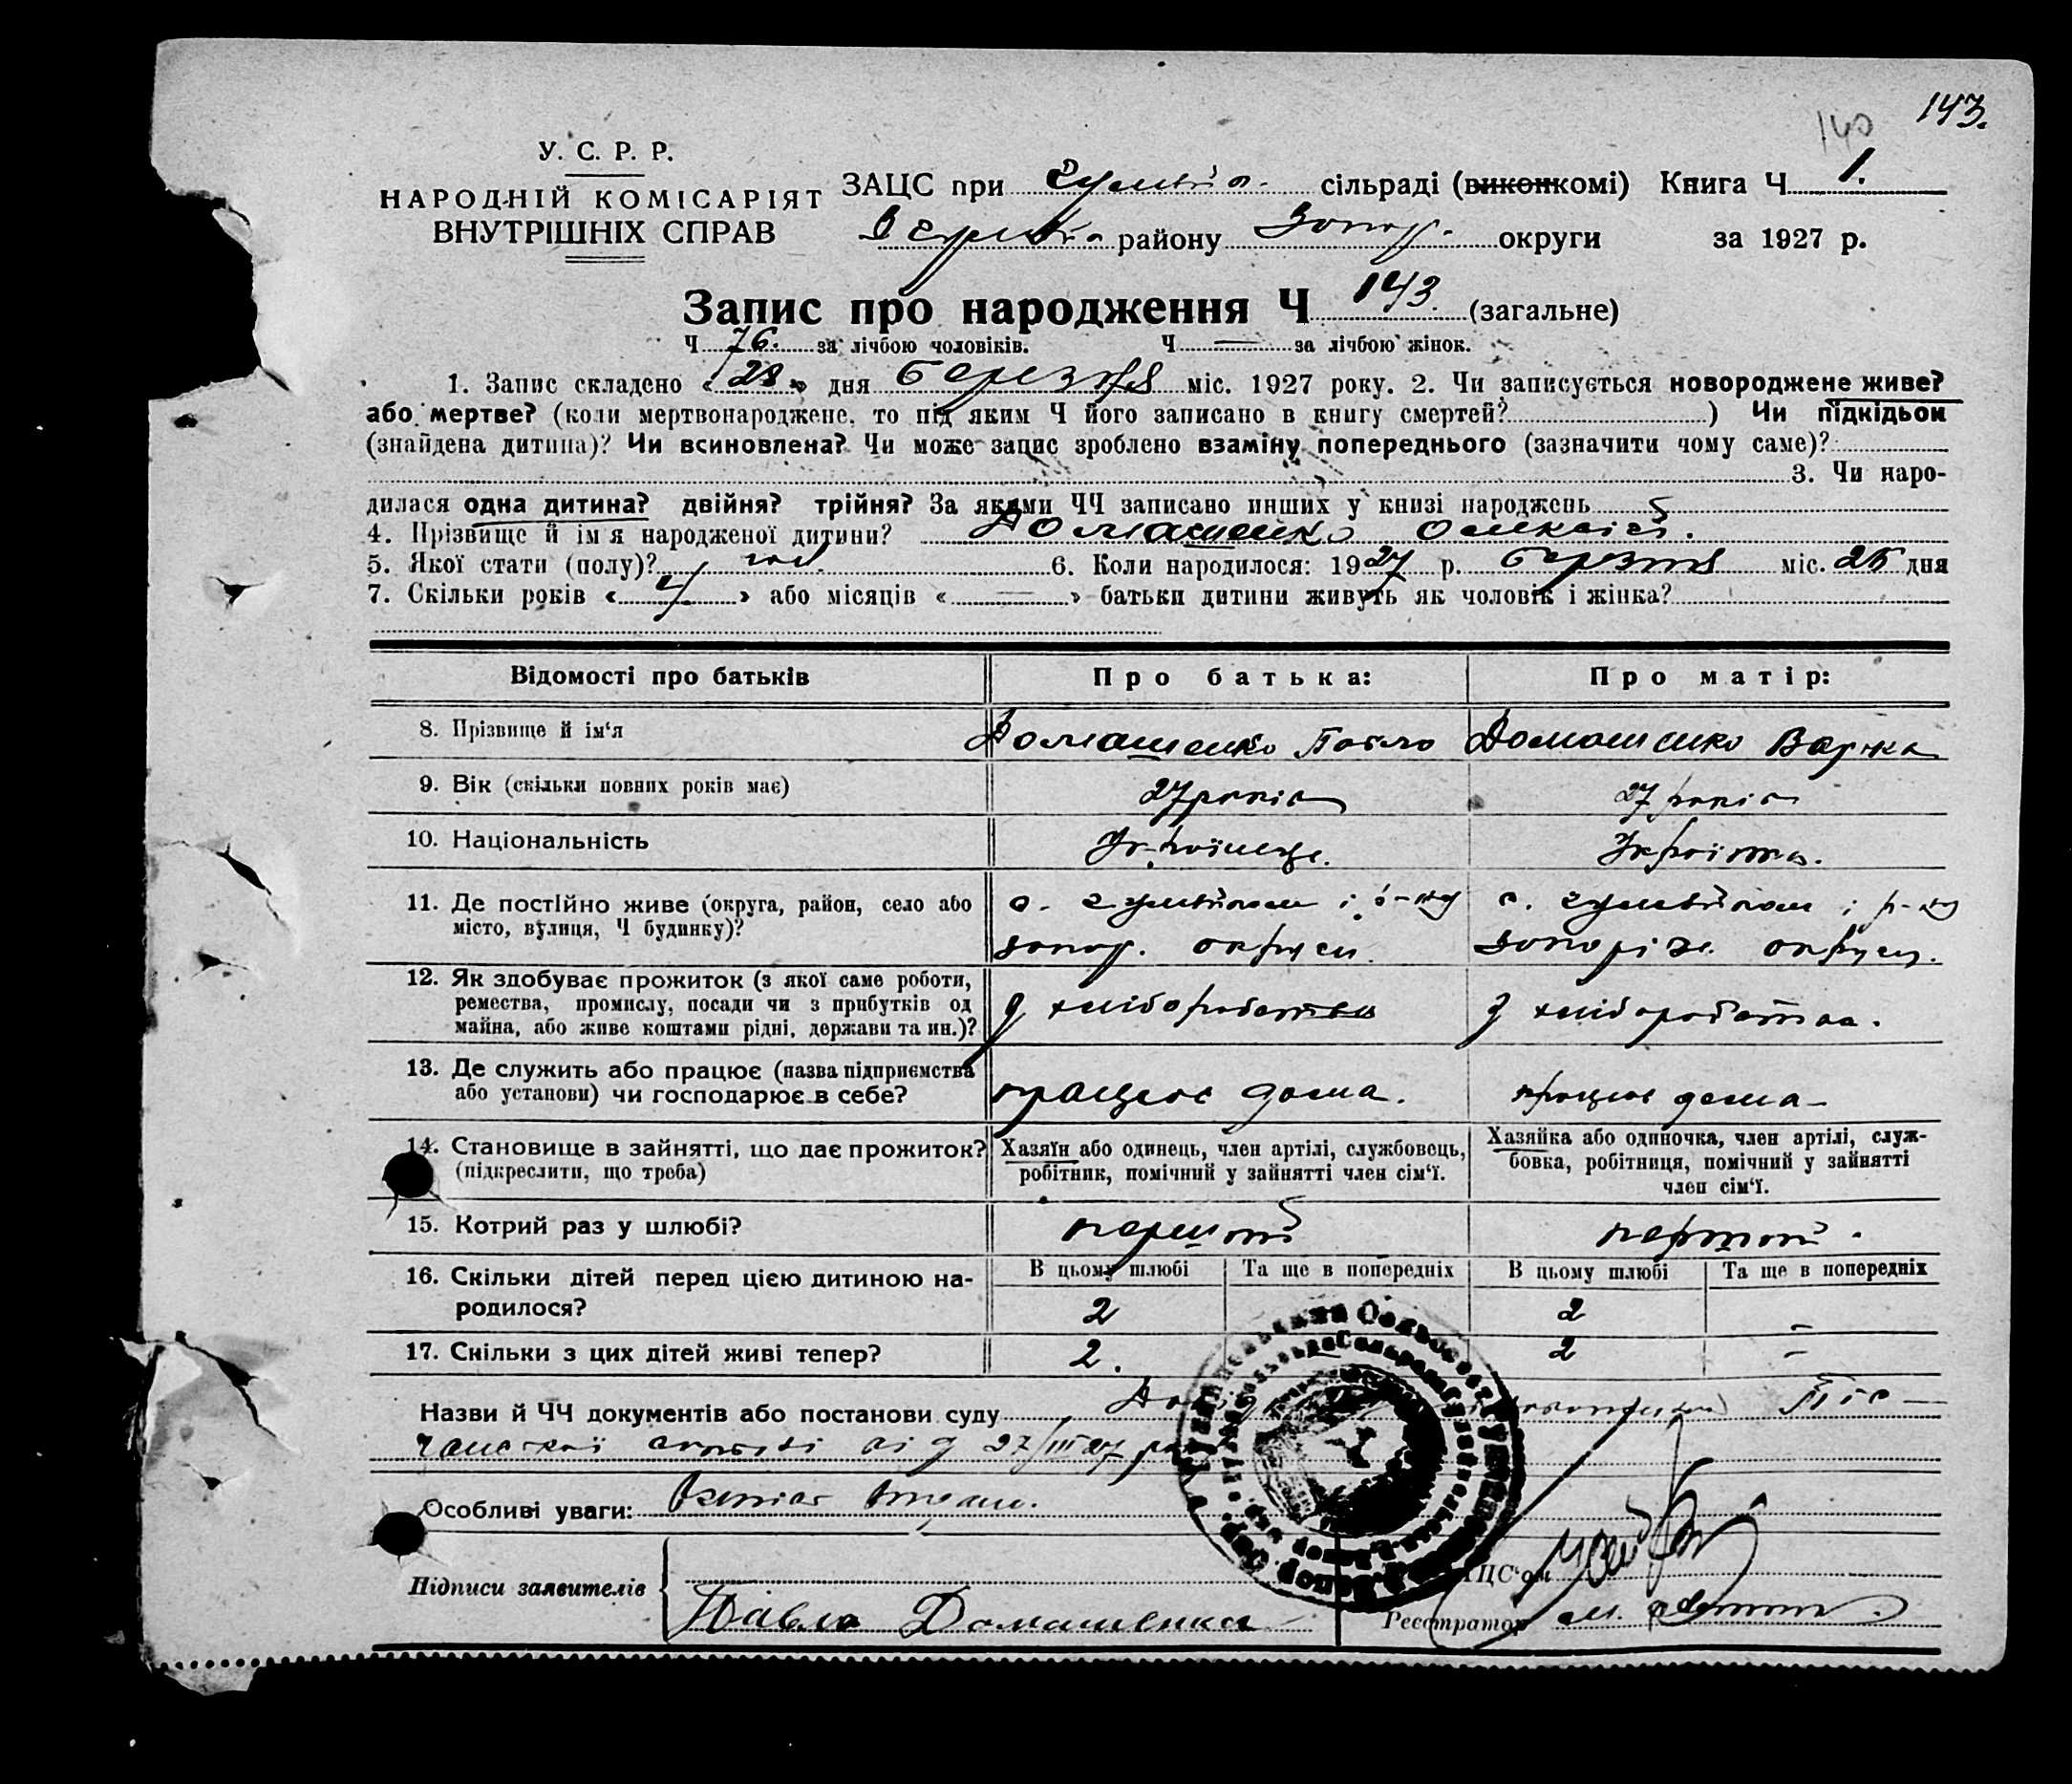 143.
140
У. С. Р. Р.
НАРОДНІЙ КОМІСАРІЯТ
ВНУТРІШНІХ СПРАВ
ЗАЦС при сільраді (виконкомі) Книга Ч 1.
району Запор. округи за 1927 р.
Запис про народження Ч 143 (загальне)
Ч 76. за лічбою чоловіків. Ч — за лічбою жінок.
1. Запис складено « 28 » дня Березня міс. 1927 року. 2. Чи записується новороджене живе?
або мертве? (коли мертвонароджене, то під яким Ч його записано в книгу смертей? ) Чи підкідьок
(знайдена дитина)? Чи всиновлена? Чи може запис зроблено взаміну попереднього (зазначити чому саме)?
3. Чи наро-
дилася одна дитина? двійня? трійня? За якими ЧЧ записано инших у книзі народжень
4. Прізвище й ім'я народженої дитини? Домашенко Олексій.
5. Якої стати (полу)? чол. 6. Коли народилося: 1927 р. березня міс. 25 дня
7. Скільки років « 4 » або місяців « — » батьки дитини живуть як чоловік і жінка?
Відомості про батьків Про батька: Про матір:
8. Прізвище й ім'я Домашенко Павло Домашенко Варька
9. Вік (скільки повних років має) 27 років 27 років
10. Національність Українець. Українка.
11. Де постійно живе (округа, район, село або с. і р-ну с. і р-ну
місто, вулиця, Ч будинку)? запор. округи. запоріз. округи.
12. Як здобуває прожиток (з якої саме роботи,
ремества, промислу, посади чи з прибутків од З хліборобства З хліборобства.
майна, або живе коштами рідні, держави та ин.)?
13. Де служить або працює (назва підприємства
або установи) чи господарює в себе? працює дома. працює дома
14. Становище в зайнятті, що дає прожиток? Хазяїн або одинець, член артілі, службовець, Хазяйка або одиночка, член артілі, служ-
(підкреслити, що треба) робітник, помічний у зайнятті член сім'ї. бовка, робітниця, помічний у зайнятті
член сім'ї.
15. Котрий раз у шлюбі? перший перший.
16. Скільки дітей перед цією дитиною на- В цьому шлюбі Та ще в попередніх В цьому шлюбі Та ще в попередніх
родилося? 2 2 –
17. Скільки з цих дітей живі тепер? 2. 2 –
Назви й ЧЧ документів або постанови суду
від 27/III 27 р
Особливі уваги:
Підписи заявителів
ЗАЦС'ом
Павло Домашенко Реєстратор